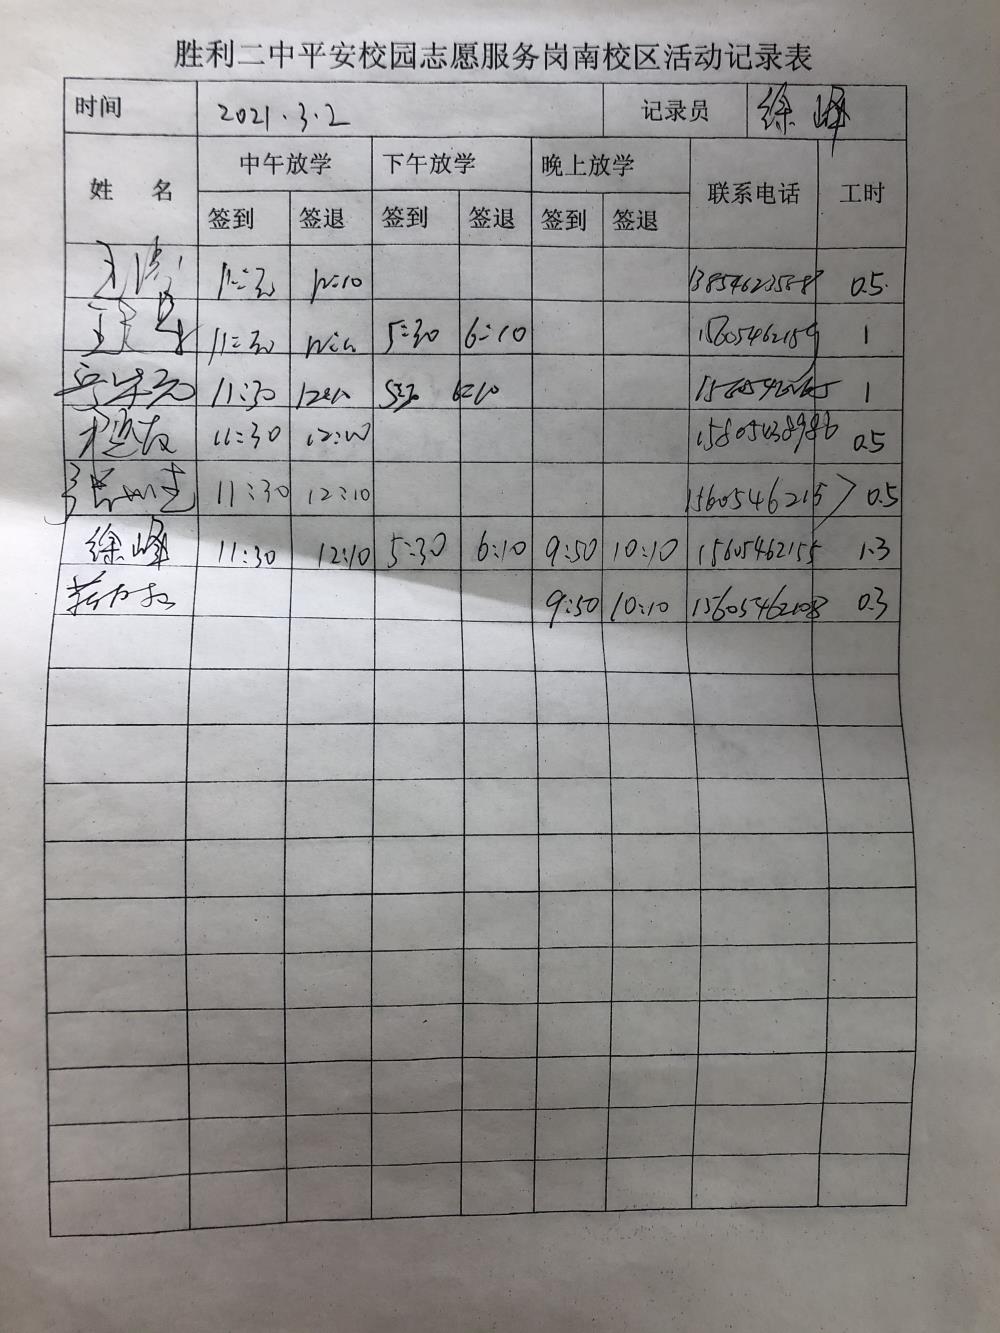 胜利二中平安校园志愿服务岗南校区活动记录表
时间 2021.3.2 记录员 徐峰
姓 名 中午放学 下午放学 晚上放学 联系电话 工时
签到 签退 签到 签退 签到 签退
11:30 12:10 0.5
11:30 5:30 6:10 15605462159 1
11:30 12:10 5:30 6:10 1
11:30 12:10 15805438986 0.5
11:30 12:10 0.5
徐峰 11:30 12:10 5:30 6:10 9:50 10:10 15605462155 1.3
9:50 10:10 15605462108 0.3